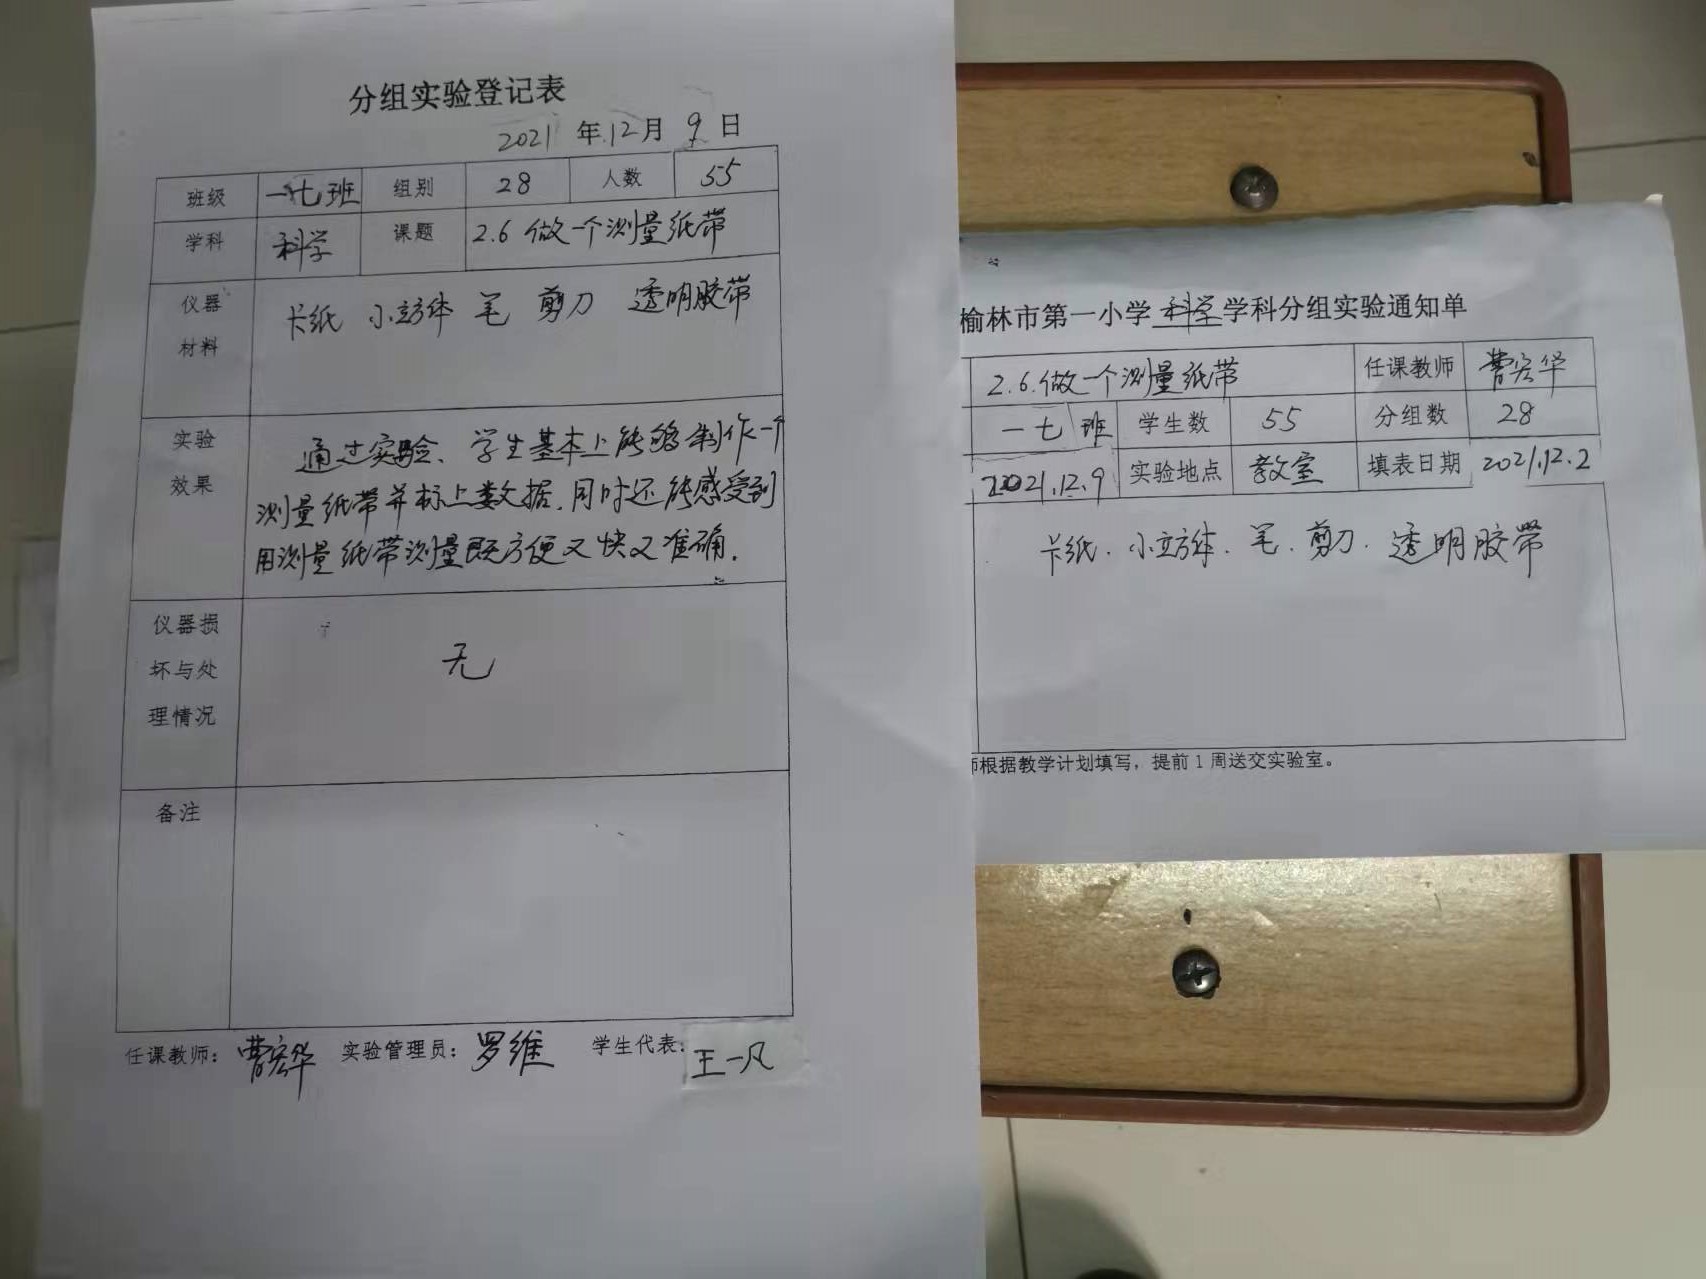 分组实验登记表
2021 年 12 月 9 日
班级 一七班 组别 28 人数 55
学科 科学 课题 2.6 做一个测量纸带
仪器
材料
卡纸 小立方体 笔 剪刀 透明胶带
实验
效果
通过实验、学生基本上能够制作一个
测量纸带并标上数据.同时还能感受到
用测量纸带测量既方便又快又准确.
仪器损
坏与处
理情况
无
备注
任课教师: 曹宏华 实验管理员: 罗维 学生代表: 王一凡
榆林市第一小学 科学 学科分组实验通知单
2.6.做一个测量纸带 任课教师 曹宏华
一七 班 学生数 55 分组数 28
2021.12.9 实验地点 教室 填表日期 2021.12.2
卡纸. 小立方体. 笔. 剪刀. 透明胶带
师根据教学计划填写，提前 1 周送交实验室。